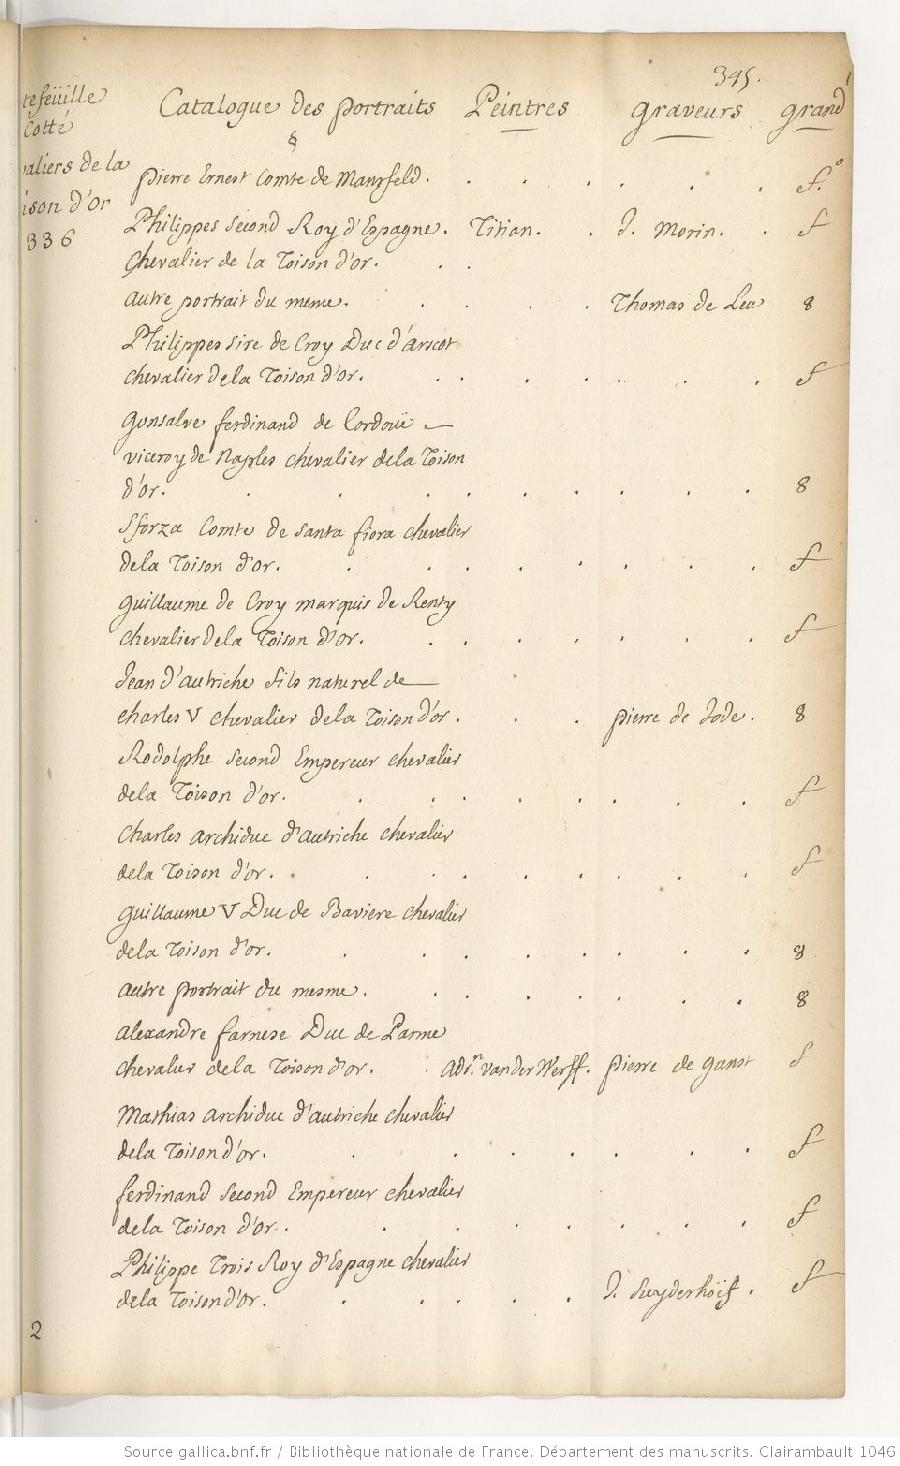 345.
tefeüille Catalogue des portraits Peintres graveurs grand
Cotté
valiers de la
ison d'Or
336
pierre Ernest Comte de Mansfeld. f.º
Philippes second Roy d'Espagne. Titian. J. Morin. f
Chevalier de la Toison d'or.
autre portrait du meme. Thomas de Leu 8
Philippes sire de Croy Duc d'arscot
chevalier de la Toison d'or. f
gonsalve ferdinand de Cordoüe
viceroy de Naples chevalier de la Toison
d'or. 8
Sforza Comte de santa fiora chevalier
de la Toison d'or. f
guillaume de Croy marquis de Renty
chevalier de la Toison d'or. f
Jean d'autriche fils naturel de
charles V chevalier de la Toison d'or. pierre de Jode. 8
Rodolphe second Empereur chevalier
de la Toison d'or. f
Charles archiduc d'autriche chevalier
de la Toison d'or. f
guillaume V Duc de Baviere chevalier
de la Toison d'or. 8
autre portrait du mesme. 8
alexandre farnese Duc de Parme
chevalier de la Toison d'or. Adr.n van der Werff. pierre de gunst f
Mathias archiduc d'autriche chevalier
de la Toison d'or. f
ferdinand second Empereur chevalier
de la Toison d'or. f
Philippe Trois Roy d'Espagne chevalier
de la Toison d'or. J. Suyderhoëf. f
2
Source gallica.bnf.fr / Bibliothèque nationale de France. Département des manuscrits. Clairambault 1046